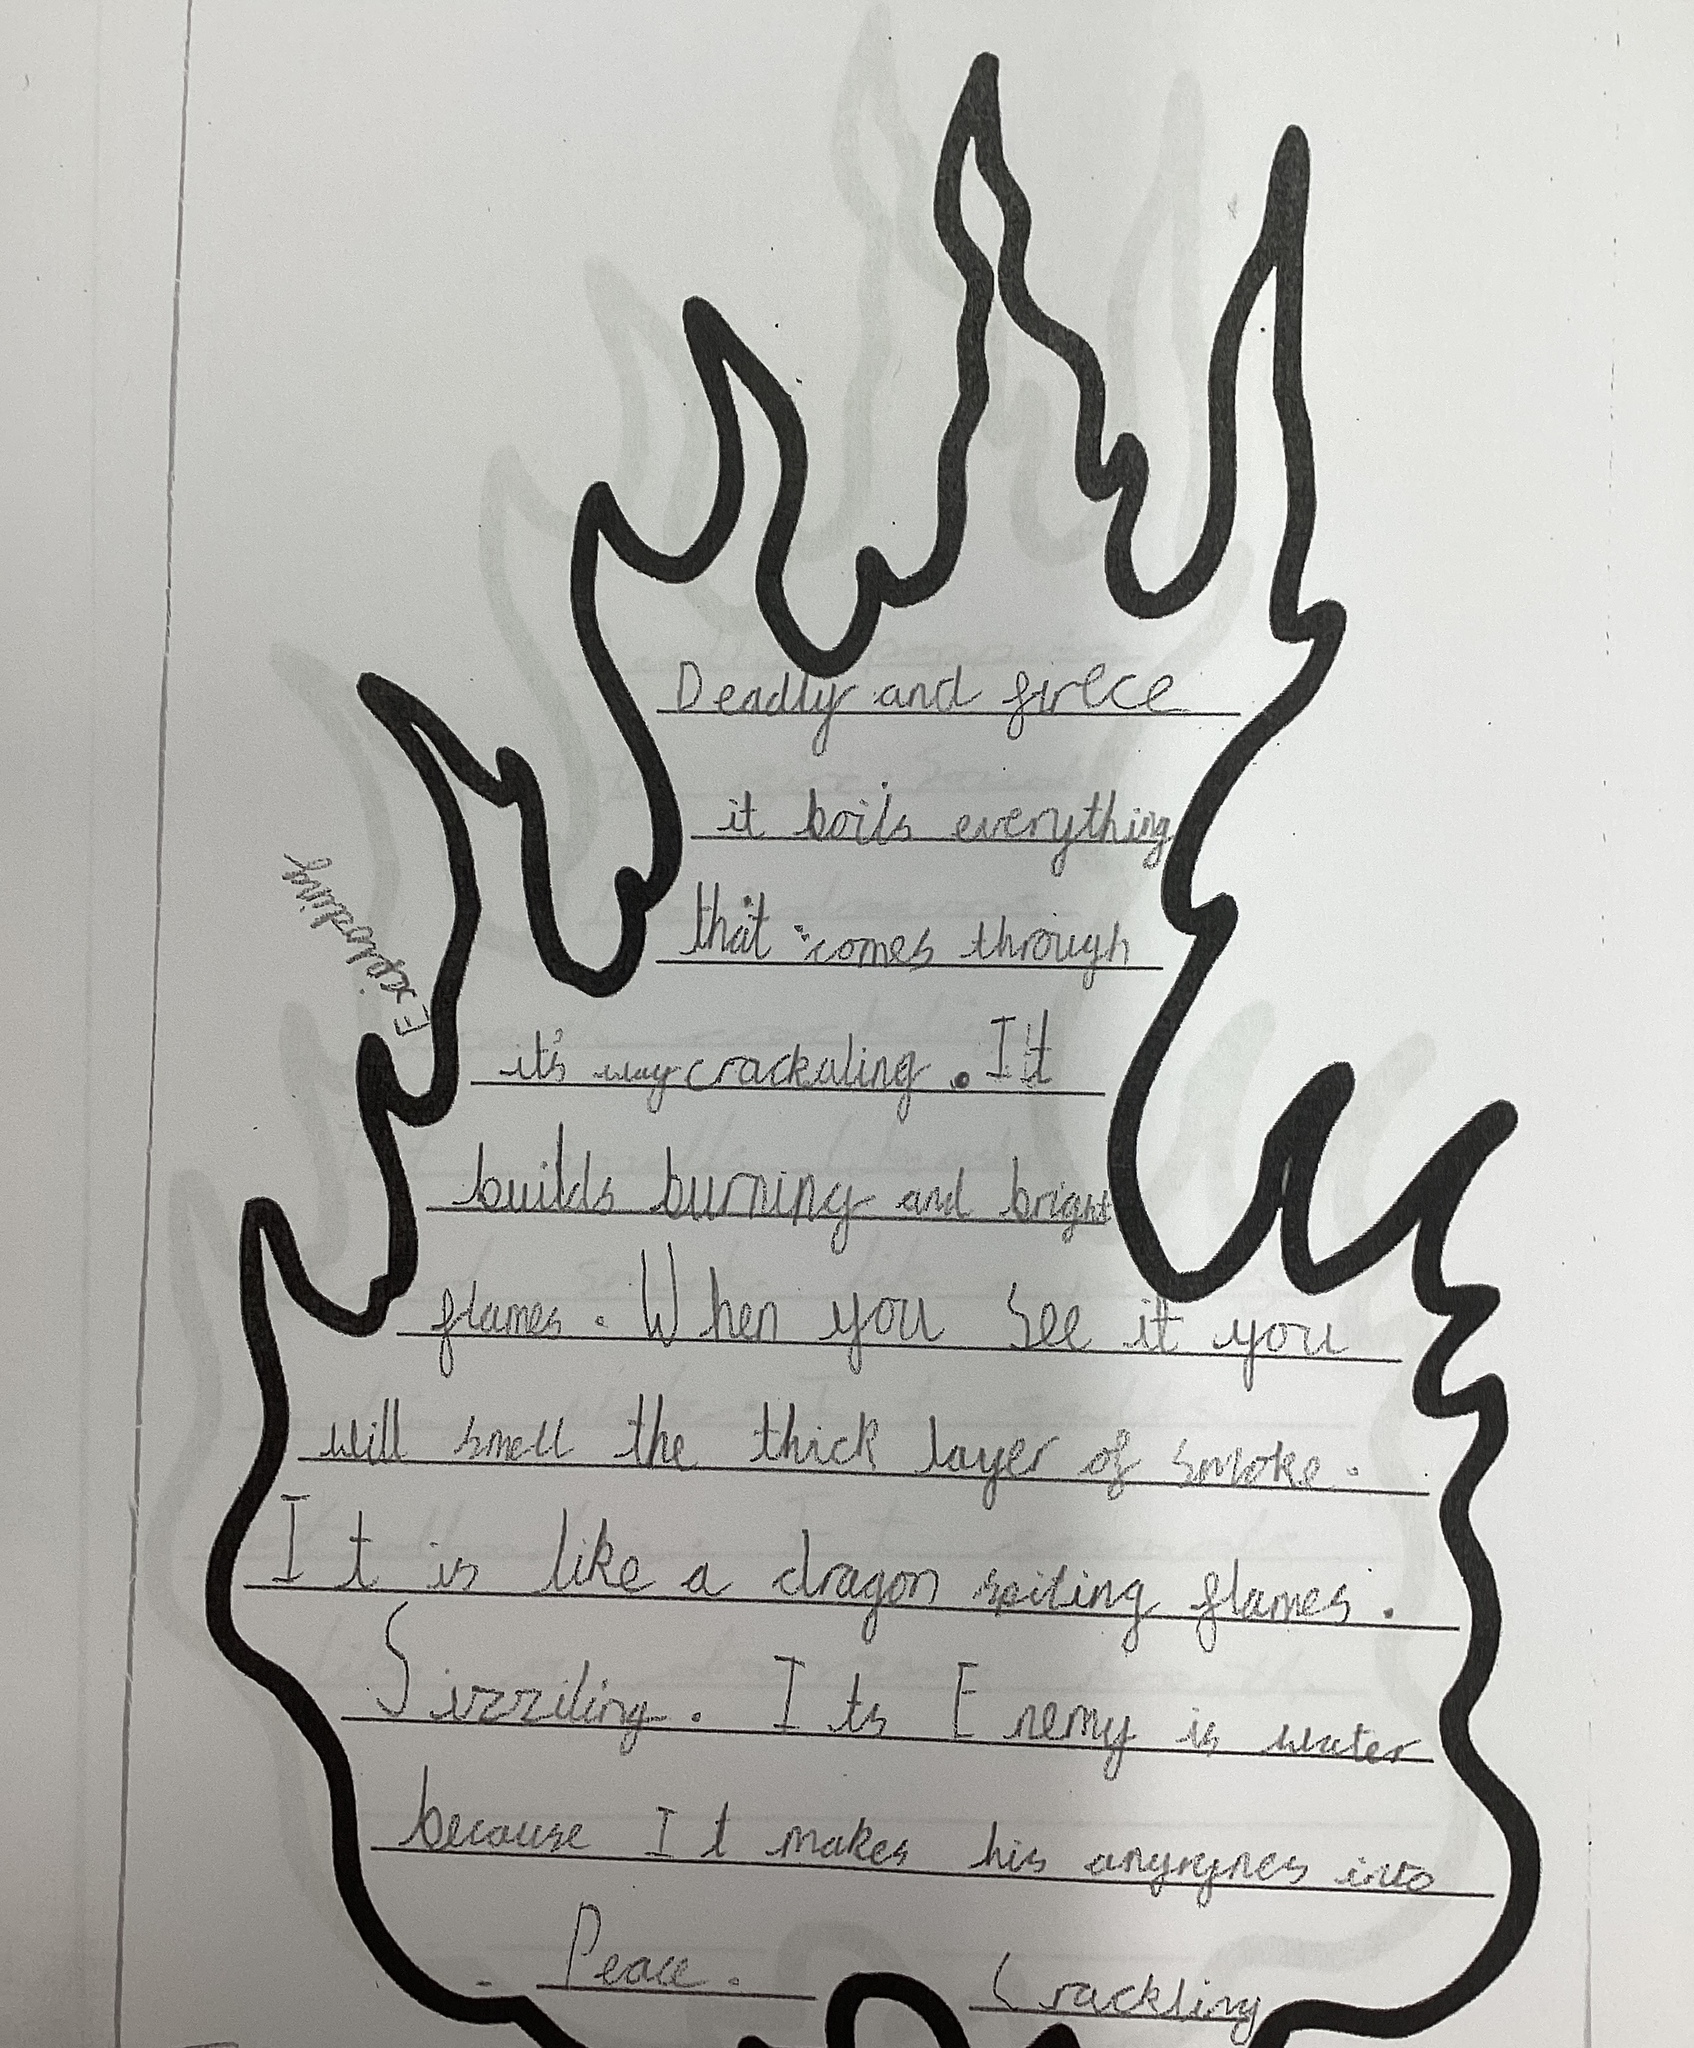 Deadly and firece
it boils everything
that comes through
it's way crackaling. It
builds burning and bright
flames. When you see it you
will smell the thick layer of smoke.
It is like a dragon spiting flames.
Sizziling. Its Enemy is water
because It makes his angryness into
Peace. Crackling